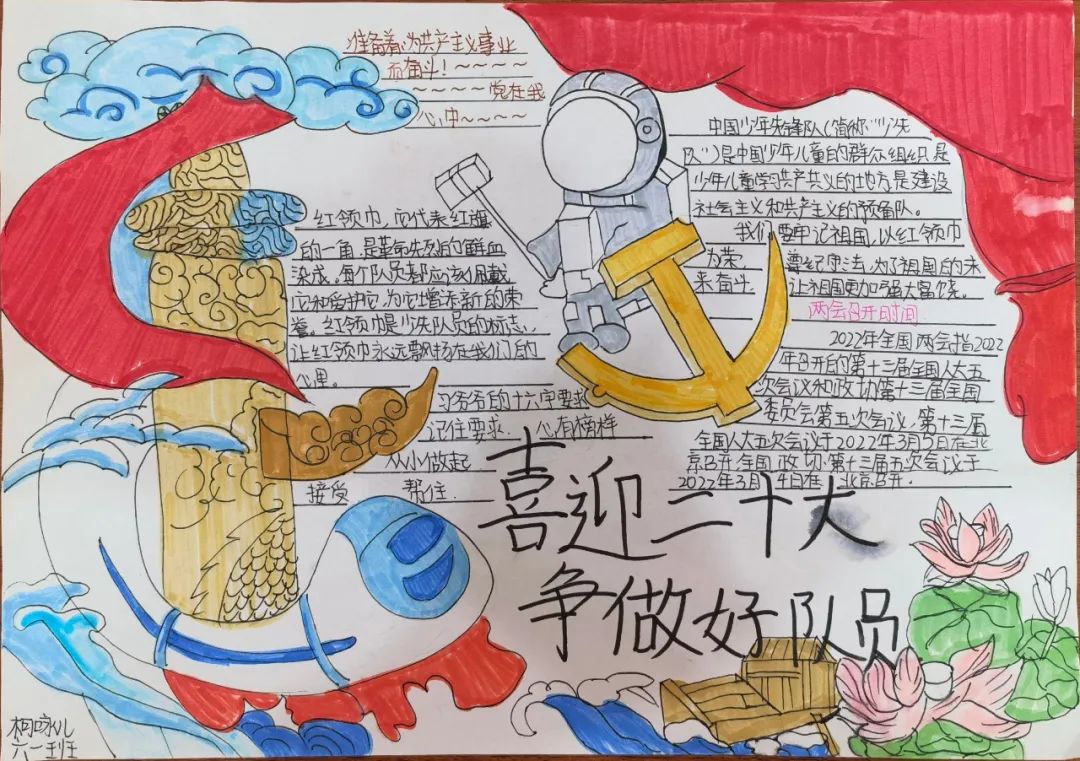 准备着,为共产主义事业
而奋斗!~~~~
~~~~~党在我
心中~~~~
红领巾,它代表红旗
的一角,是革命先烈的鲜血
染成。每个队员都应该佩戴
它和爱护它,为它增添新的荣
誉。红领巾是少先队员的标志,
让红领巾永远飘扬在我们的
心里。
习爷爷的十六字要求
记住要求 心有榜样
从小做起
接受 帮住.
中国少年先锋队(简称“少先
队”)是中国少年儿童的群众组织是
少年儿童学习共产共义的地方是建设
社会主义和共产主义的预备队。
我们要牢记祖国,以红领巾
为荣, 遵纪守法,为了祖国的未
来奋斗 让祖国更加强大富饶。
两会召开时间
2022年全国两会指2022
年召开的第十三届全国人大五
次会议和政协第十三届全国
委员会第五次会议。第十三届
全国人大五次会议于2022年3月5日在北
京召开.全国政协第十三届五次会议于
2022年3月4日在北京召开.
喜迎二十大
争做好队员
六一班